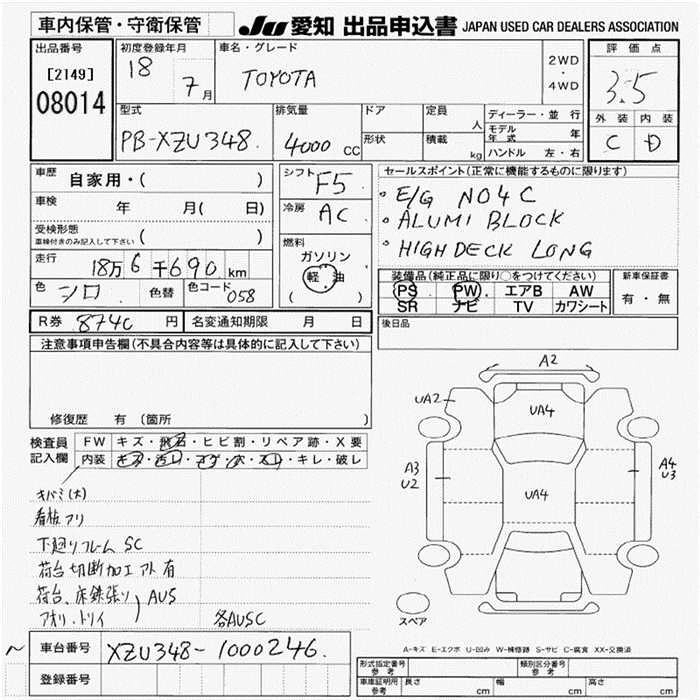 車内保管・守衛保管
JU 愛知 出品申込書 JAPAN USED CAR DEALERS ASSOCIATION
出品番号
[2149]
08014
初度登録年月
18
7月
車名・グレード
TOYOTA
2WD
・
4WD
評価点
3.5
外装 内装
C D
型式
PB-XZU348
排気量
4000 CC
ドア
形状
定員 人
積載 kg
ディーラー・並行
モデル年式 年
ハンドル 左・右
車歴 自家用・( )
車検 年 月( 日)
受検形態 ( )
車検付きのみ記入して下さい
走行 18万6千690km
色 シロ 色替 色コード 058
シフト F5
冷房 AC
燃料
ガソリン
軽油
( )
セールスポイント(正常に機能するものに限ります)
E/G NO4C
ALUMI BLOCK
HIGH DECK LONG
装備品(純正品に限り○をつけてください)
PS PW エアB AW
SR ナビ TV カワシート
新車保証書
有・無
R券 8740 円 名変通知期限 月 日
後日品
注意事項申告欄(不具合内容等は具体的に記入して下さい)
修復歴 有(箇所 )
検査員記入欄
FW キズ・飛石・ヒビ割・リペア跡・X要
内装 キズ・汚レ・コゲ・穴・スレ・キレ・破レ
キバミ(大)
看板アリ
下廻りフレーム SC
荷台切断加工アト有
荷台、床鉄張り
アオリ、トリイ
AUS
各AUSC
A2
UA2
UA4
A3
U2
UA4
A4
U3
スペア
A-キズ E-エクボ U-凹み W-補修跡 S-サビ C-腐食 XX-交換済
車台番号 XZU348-1000246
登録番号
形式指定番号 参考
類別区分番号 参考
車庫証明用 参考 長さ cm 幅 cm 高さ cm